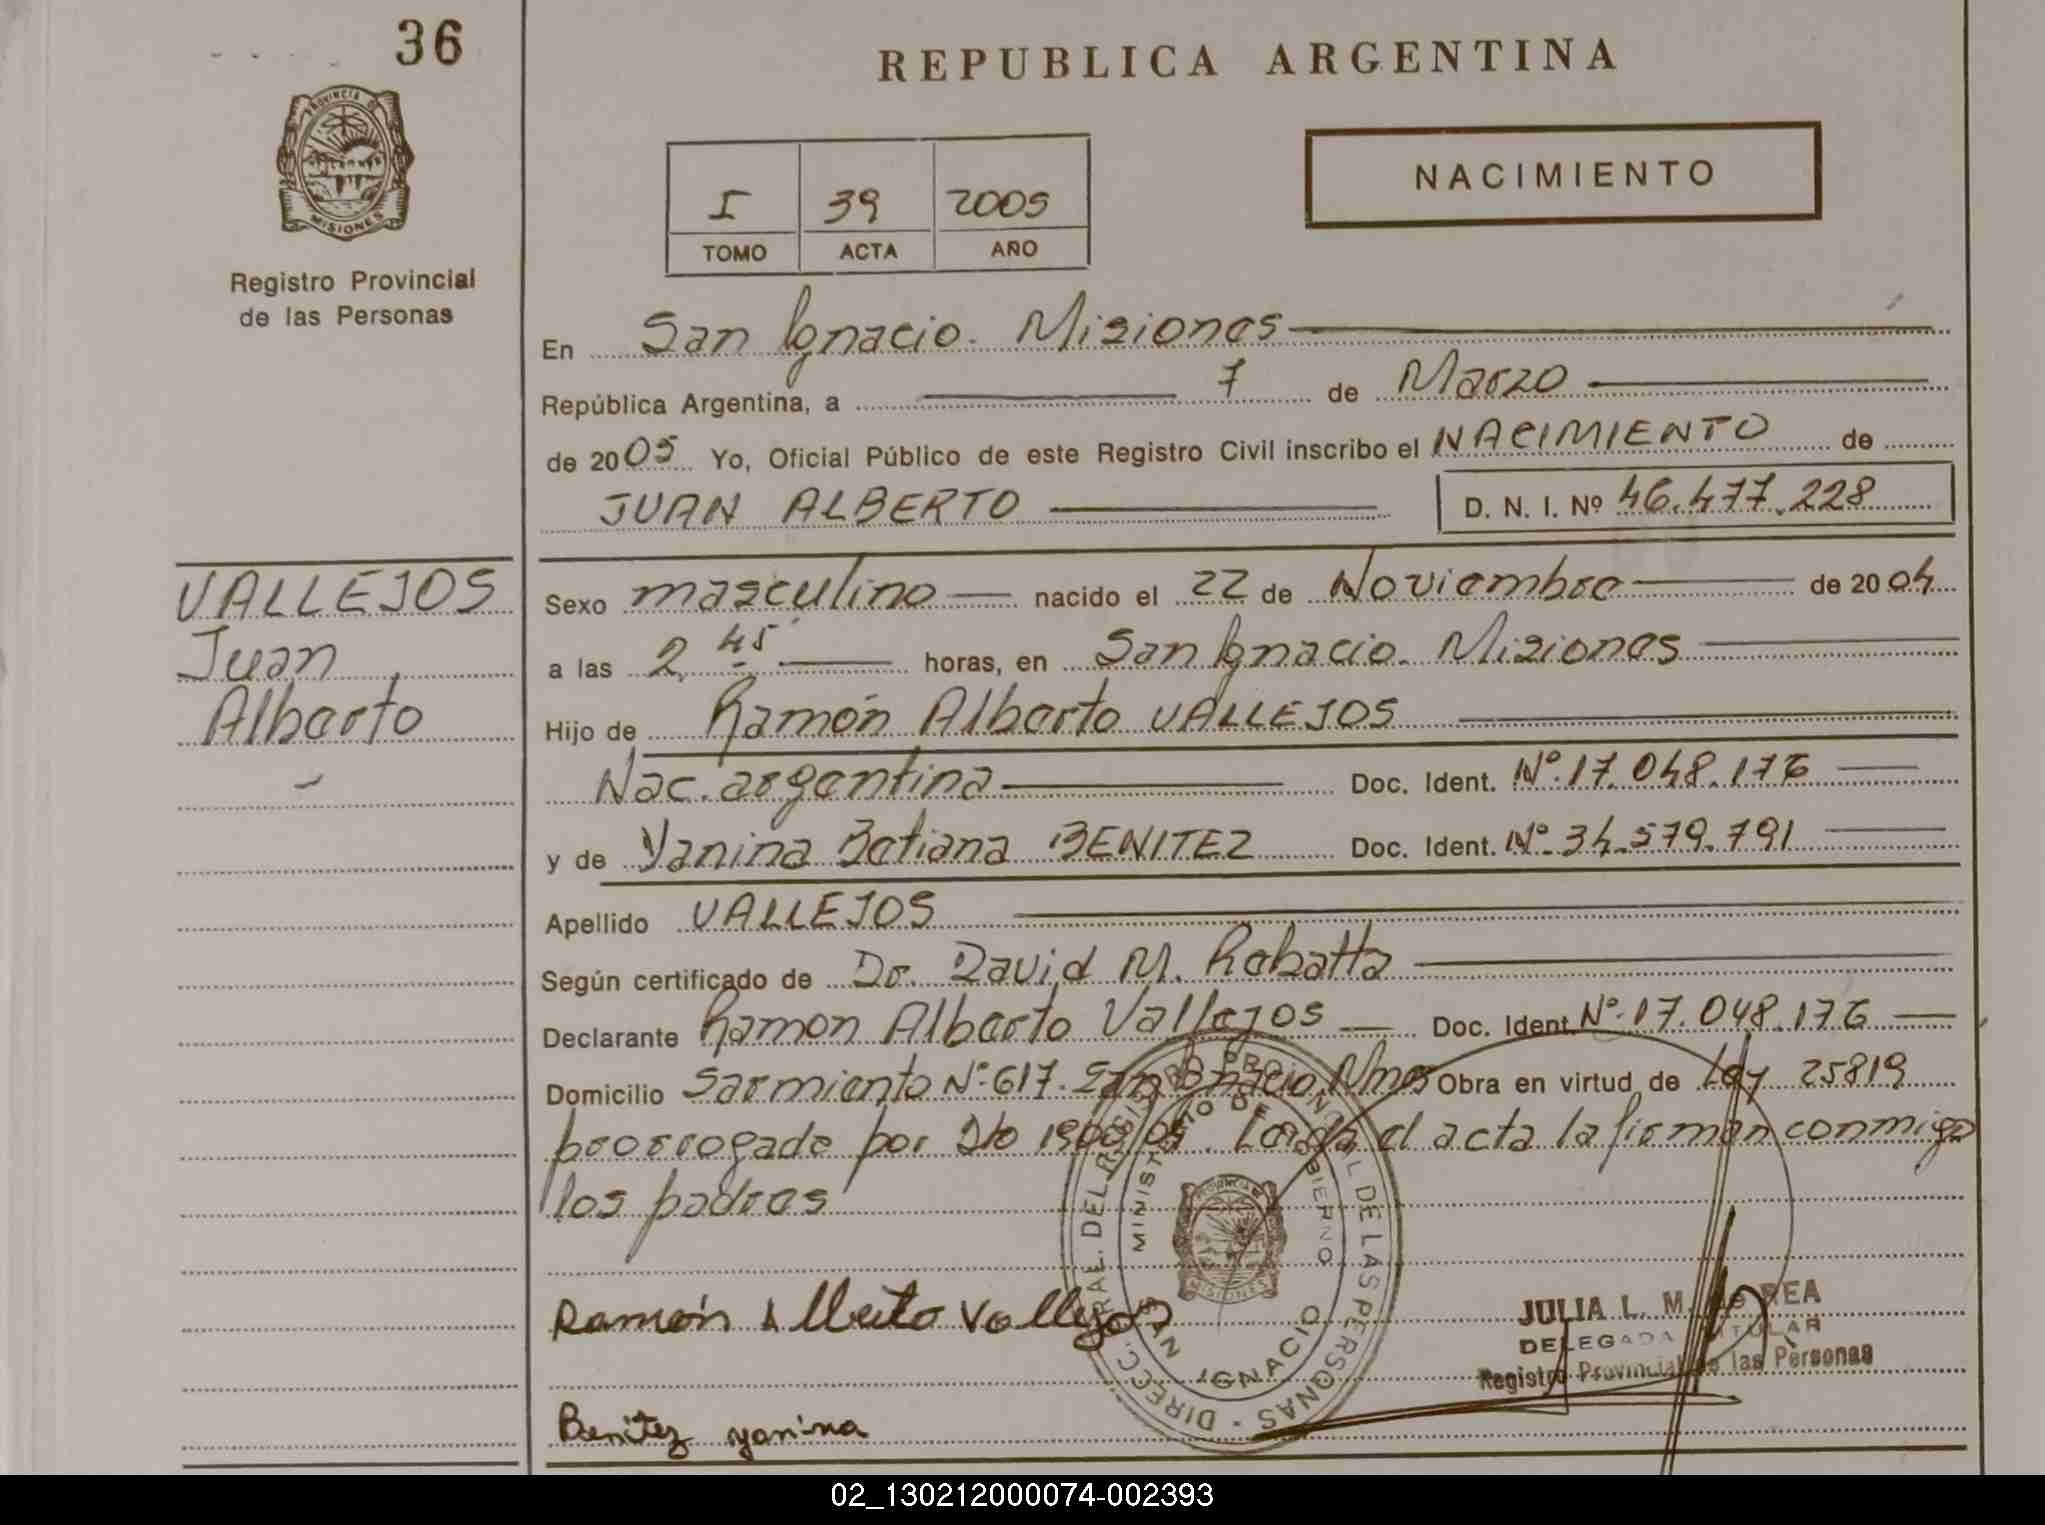 36
REPUBLICA ARGENTINA
PROVINCIA DE
MISIONES
Registro Provincial
de las Personas
NACIMIENTO
I 39 2005
TOMO ACTA AÑO
En San Ignacio. Misiones
República Argentina, a 7 de Marzo
de 2005 Yo, Oficial Público de este Registro Civil inscribo el NACIMIENTO de
JUAN ALBERTO D. N. I. Nº 46.477.228
VALLEJOS
Juan
Alberto
Sexo masculino nacido el 22 de Noviembre de 2004
a las 2,45 horas, en San Ignacio. Misiones
Hijo de Ramón Alberto VALLEJOS
Nac. argentina Doc. Ident. Nº.17.048.176
y de Yanina Betiana BENITEZ Doc. Ident. Nº.34.579.791
Apellido VALLEJOS
Según certificado de Dr. David M. Rebatta
Declarante Ramon Alberto Vallejos Doc. Ident. Nº.17.048.176
Domicilio Sarmiento Nº.617. San Ignacio Mnes Obra en virtud de Ley 25819
prorrogado por Dto 1900/04. Leída el acta la firman conmigo
los padres
Ramón Alberto Vallejos
Benitez yanina
DIRECC. GRAL. DEL REGISTRO PROVINCIAL DE LAS PERSONAS
MINISTERIO DE GOBIERNO
SAN IGNACIO
MISIONES
JULIA L. M. de REA
DELEGADA TITULAR
Registro Provincial de las Personas
02_130212000074-002393